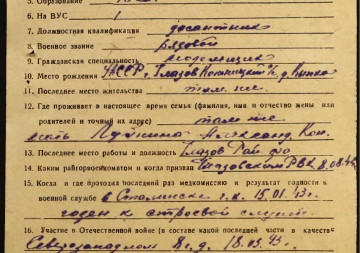 5. Образование
6. На ВУС 1
7. Должностная квалификация десантник
8. Военное звание рядовой
9. Гражданская специальность
10. Место рождения УАССР, г. Глазов
11. Последнее место жительства там же
12. Где проживает в настоящее время семья (фамилия, имя и отчество жены или
родителей и точный их адрес) там же
мать Александ.
13. Последнее место работы и должность Глазов
14. Каким райгорвоенкоматом и когда призван Глазовским РВК
15. Когда и где проходил последний раз медкомиссию и результат годности к
военной службе в Сталинске г.к. 15.01.43 г.
годен к строевой службе
16. Участие в Отечественной войне (в составе какой последней части в качестве
Северозападном 8 г.д. 18.03.43 г.